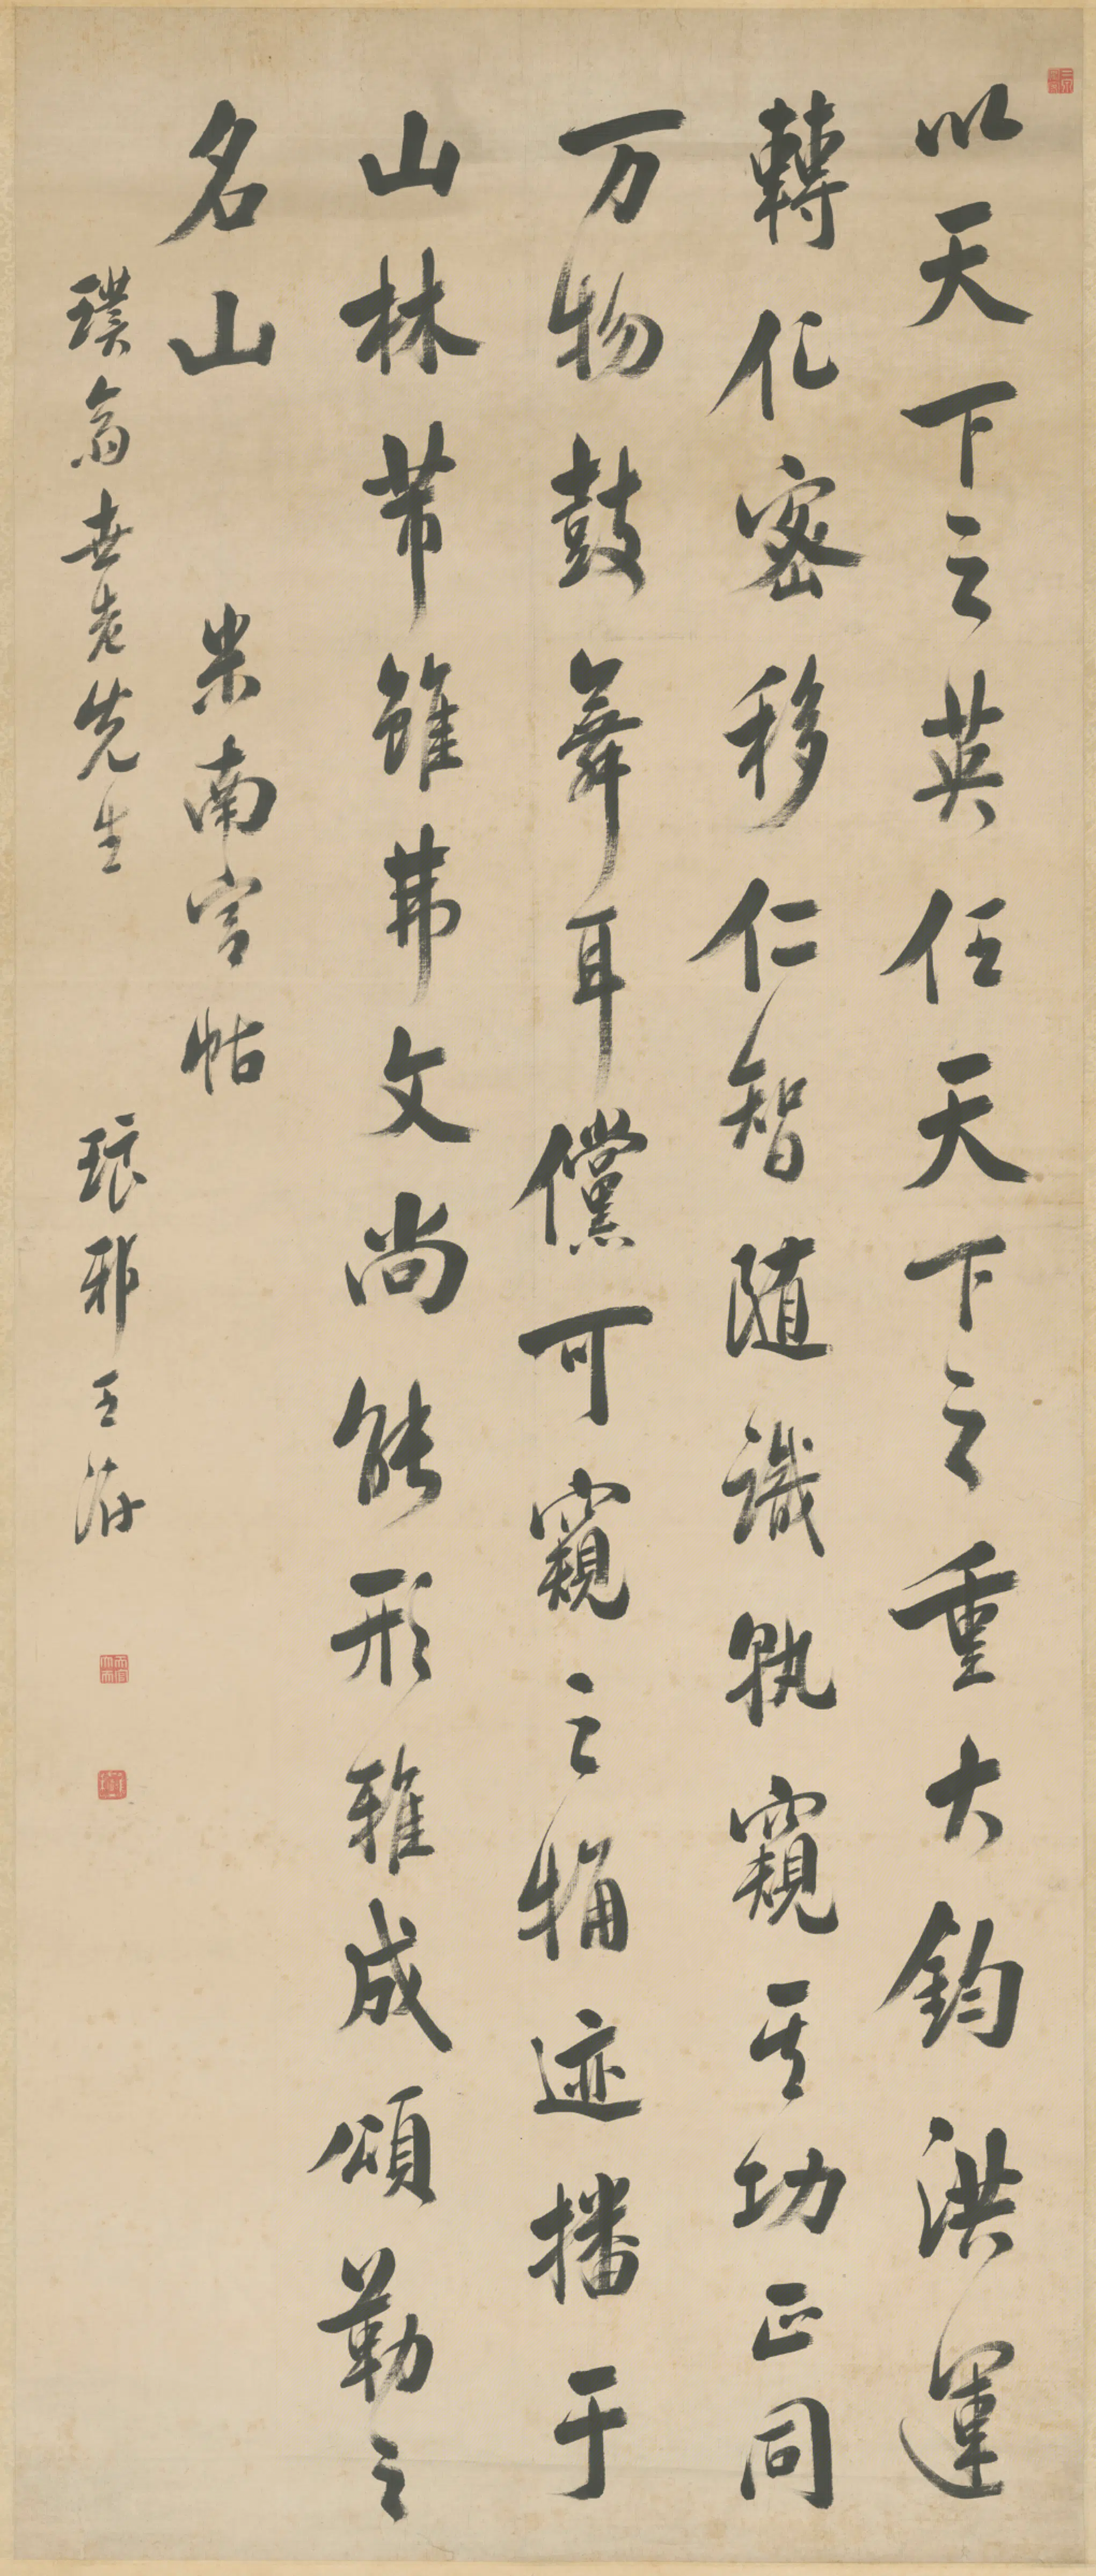 以天下之英任天下之重大鈞洪運
轉化密移仁智隨識孰窺其功正同
万物鼓舞耳儻可窺之桶迹播于
山林芾雖弗文尚能形雅成頌勒之
名山
米南宮帖
璞翁世老先生
琅邪王澍